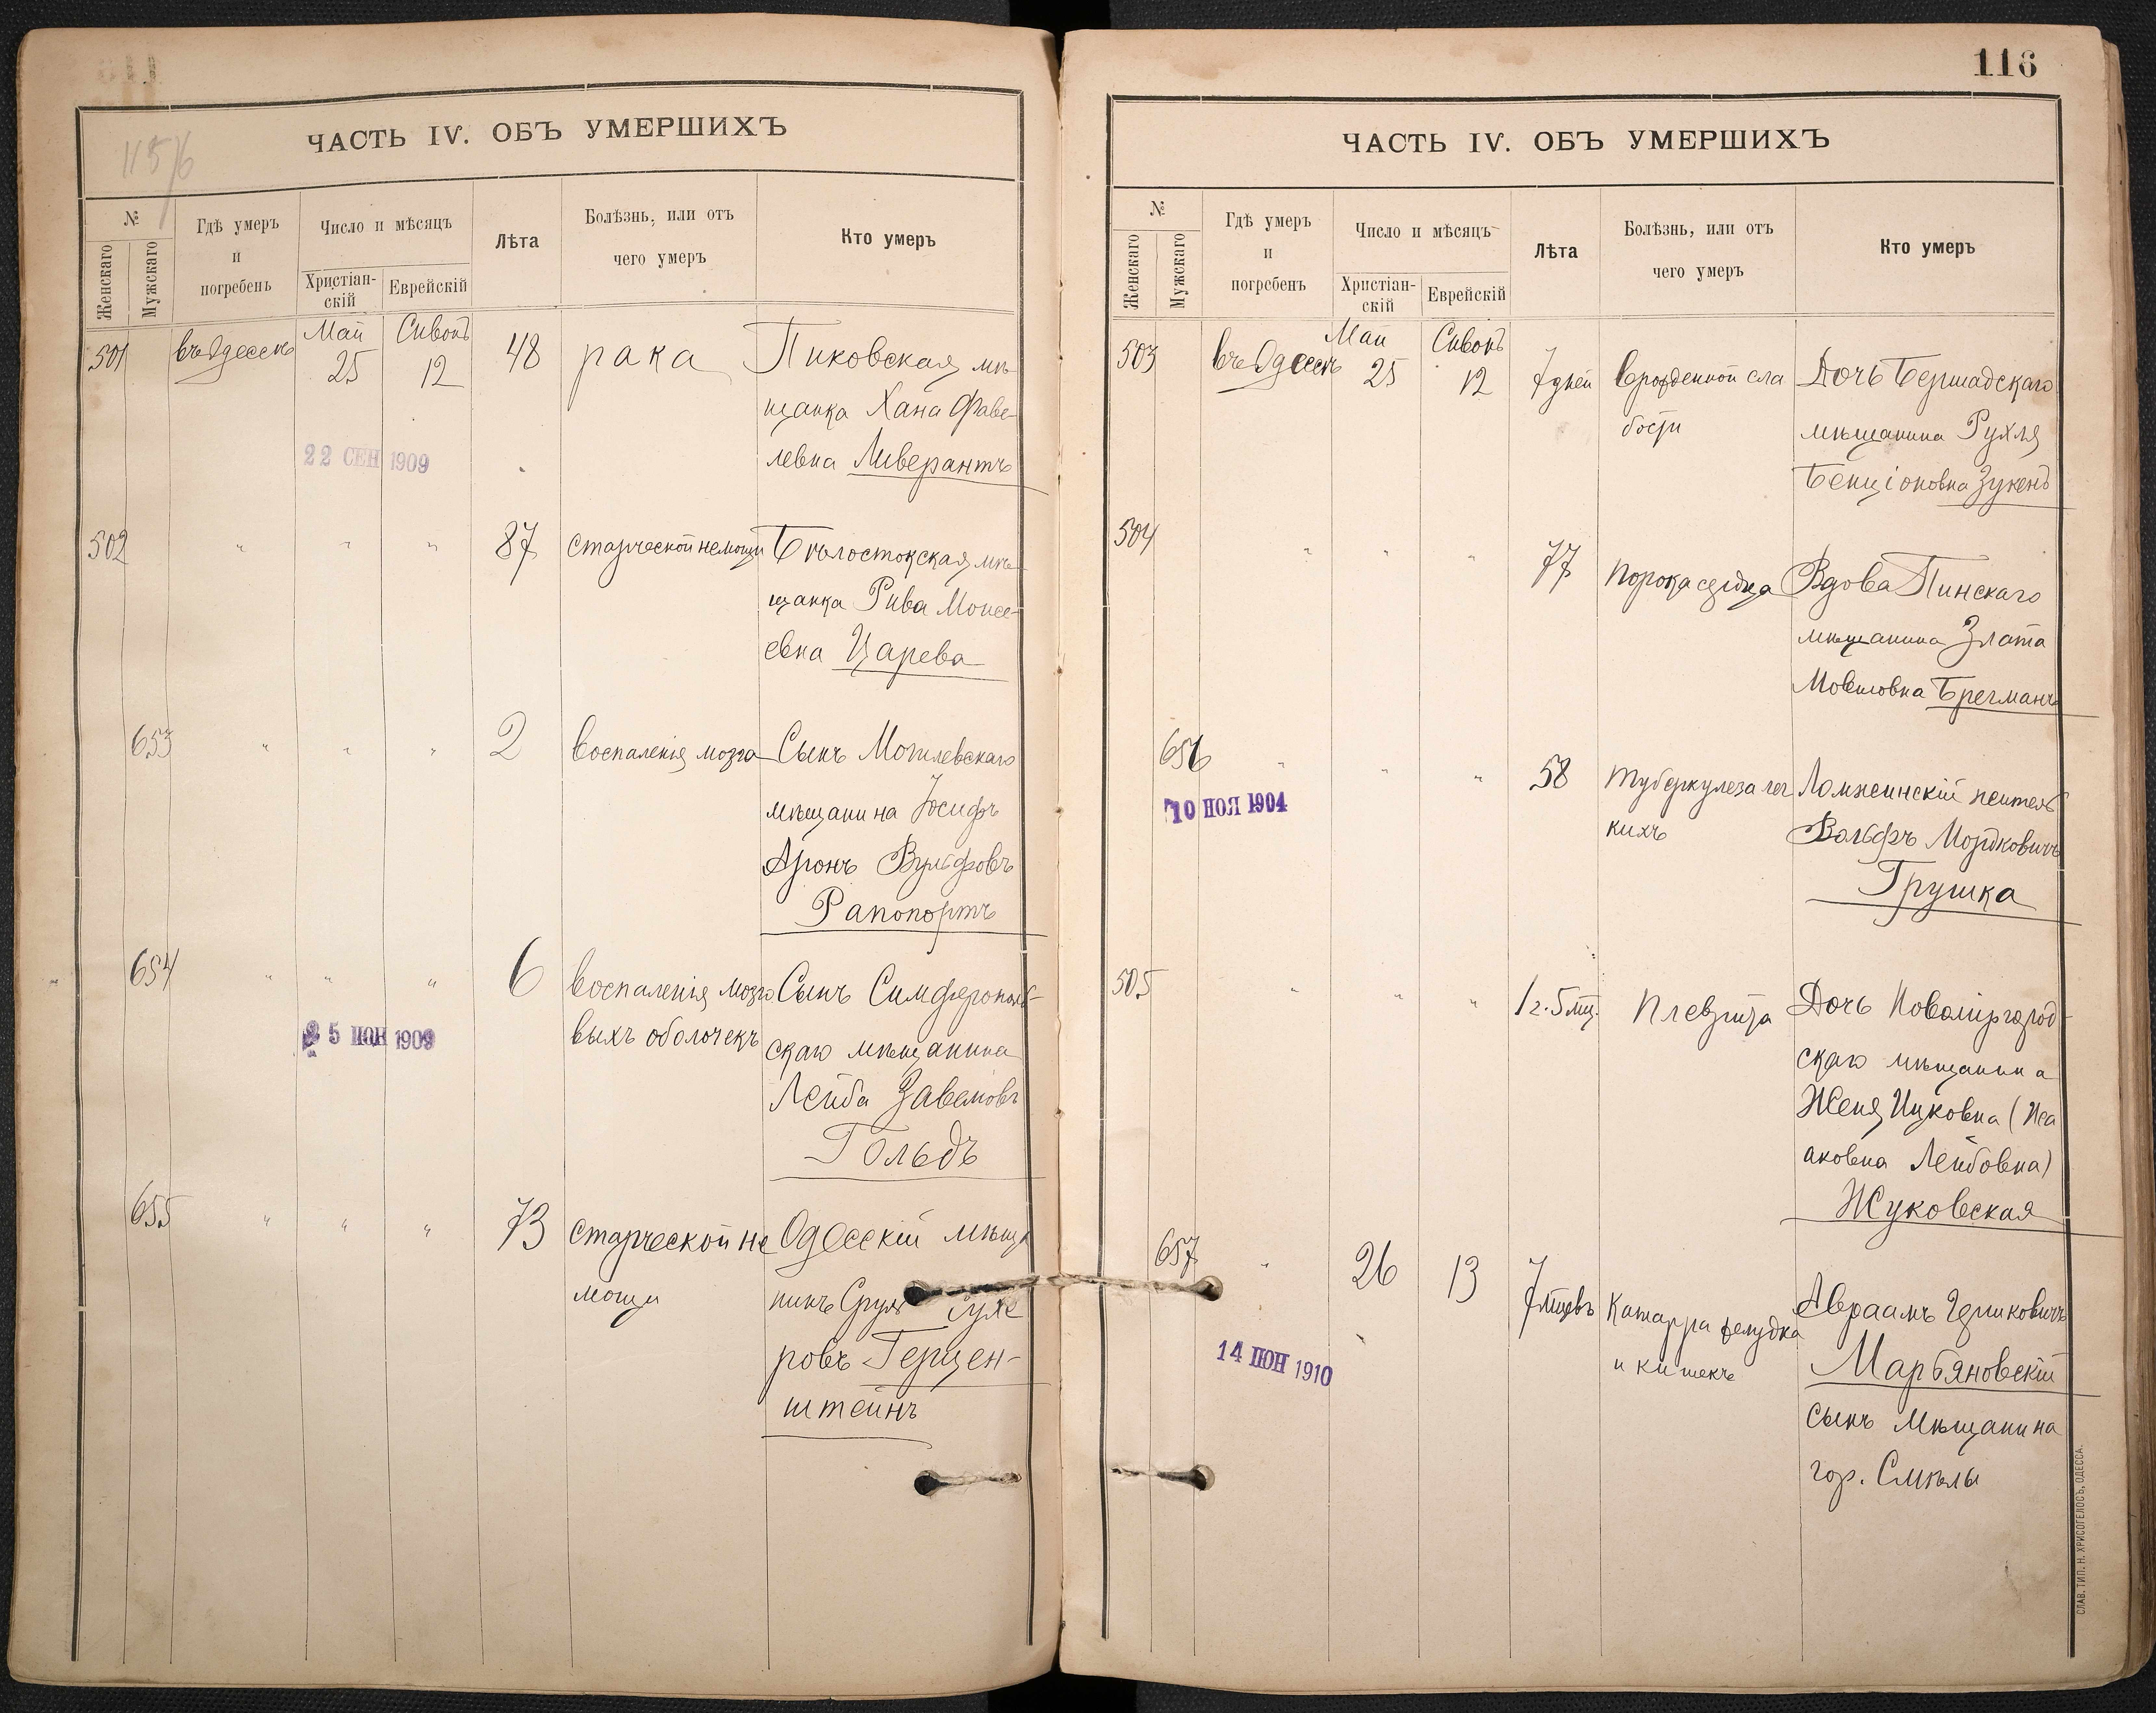 115/6
ЧАСТЬ IV. ОБЪ УМЕРШИХЪ
№
Женскаго
Мужскаго
Гдѣ умеръ
и
погребенъ
Число и мѣсяцъ
Христіан-
скій
Еврейскій
Лѣта
Болѣзнь, или отъ
чего умеръ
Кто умеръ
501
въ Одессѣ
Май
25
Сивонъ
12
48
рака
Пиковская мѣ
щанка Хана Фаве-
левна Ливерантъ
22 СЕН 1909
502
" " "
87
старческой немощи
Бѣлостокская мѣ-
щанка Рива Моисе-
евна Царева
653
" " "
2
воспаленія мозга
Сынъ Могилевскаго
мѣщанина Іосифъ
Аронъ Вульфовъ
Рапопортъ
654
" " "
6
воспаленія мозго
выхъ оболочекъ
Сынъ Симферополь-
скаго мѣщанина
Лейба Завелювъ
Гольдъ
25 ІЮН 1909
655
" " "
73
старческой не
мощи
Одесскій мѣща
нинъ Сруль
ровъ Герцен-
штейнъ
116
ЧАСТЬ IV. ОБЪ УМЕРШИХЪ
№
Женскаго
Мужскаго
Гдѣ умеръ
и
погребенъ
Число и мѣсяцъ
Христіан-
скій
Еврейскій
Лѣта
Болѣзнь, или отъ
чего умеръ
Кто умеръ
503
въ Одессѣ
Май
25
Сивонъ
12
7 дней
врожденной сла
бости
Дочь Бершадскаго
мѣщанина Рухля
Бенціоновна Зукенъ
504
" " "
77
порока сердца
Вдова Пинскаго
мѣщанина Злата
Мовшовна Брегманъ
656
" " "
58
туберкулеза лег
кихъ
Ломжинскій житель
Вольфъ Мордковичъ
Грушка
10 НОЯ 1904
505
" " "
1 г. 5 мц.
Плеврита
Дочь Новомиргород-
скаго мѣщанина
Женя Ицковна (Иса
аковна Лейбовна)
Жуковская
657
"
26
13
7 мцевъ
Катарра желудка
и кишекъ
Авраамъ Гершковичъ
Марьяновскій
сынъ мѣщанина
гор. Смѣлы
14 ІЮН 1910
СЛАВ. ТИП. Н. ХРИСОГЕЛОСЪ, ОДЕССА.